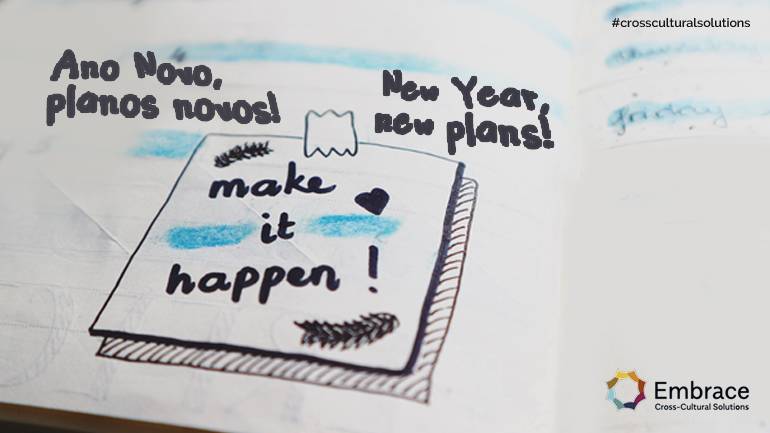 #crossculturalsolutions
Ano Novo,
planos novos!
New Year,
new plans!
make
it
happen!
Embrace
Cross-Cultural Solutions